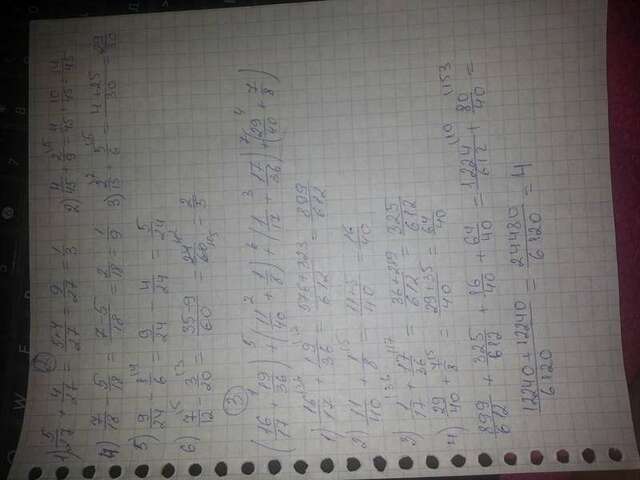 1) 5/27 + 4/27 = 5+4/27 = 9/27 = 1/3 2) 4/45 + 2/9 = 4/45 + 10/45 = 14/45
4) 7/18 - 5/18 = 7-5/18 = 2/18 = 1/9 3) 2/15 5/6 = 4+25/30 = 29/30
5) 9/24 - 1/6 = 9/24 - 4/24 = 5/24
6) 7/12 - 3/20 = 35-9/60 =
(16/17 + 19/36) + (11/40 + 1/8) + (1/17 + 17/36) + (29/40 + 7/8)
1) 16/17 + 19/36 = 576+323/612 = 899/612
2) 11/40 + 1/8 = 11+5/40 = 16/40
3) 1/17 + 17/36 = 36+289/612 = 325/612
4) 29/40 + 7/8 = 29+35/40 = 64/40
899/612 + 325/612 + 16/40 + 64/40 = 1224/612 + 80/40 =
12240+12240/6120 = 24480/6120 = 4